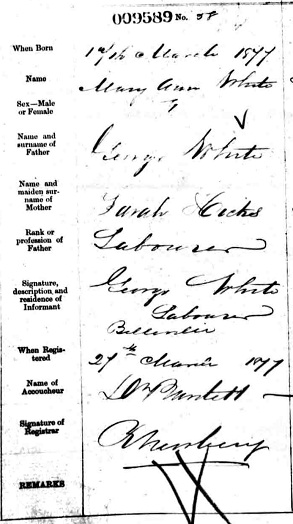 009589 No. 58
When Born 12th March 1877
Name Mary Ann White
Sex—Male
or Female F
Name and
surname of
Father
George White
Name and
maiden sur-
name of
Mother
Sarah Hocks
Rank or
profession of
Father
Labourer
Signature,
description, and
residence of
Informant
George White
Labourer
When Regis-
tered
27th March 1877
Name of
Accoucheur
Dr
Signature of
Registrar
REMARKS